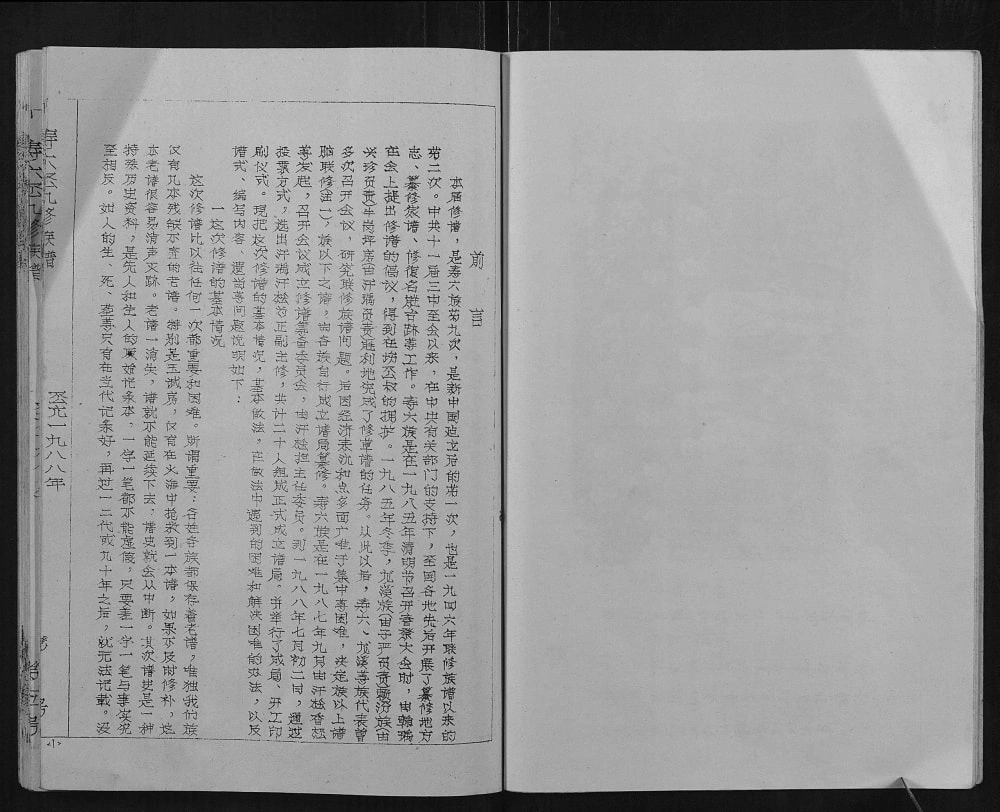 前言
本届修谱，是寿六族第九次，是新中国建立后的第一次，也是一九四六年联修族谱以来的
第二次。中共十一届三中全会以来，在中央有关部门的支持下，全国各地先后开展了纂修地方
志、纂修家谱、修复名胜古跡等工作。寿六族是在一九八五年清明节召开春祭大会时，由
在会上提出修谱的倡议，得到在场丕叔的拥护。一九八五年冬季，龙溪族由于严贡责
兴珍负责牛岗坪房由汗瑞负责胜利地完成了修草谱的任务。从此以后，寿六、龙溪等族代表曾
多次召开会议，研究联修族谱问题。后因经济来沅和点多面广难于集中等困难，决定族以上谱
脑联修注一)，族以下之谱，由各族自行成立谱局纂修。寿六族是在一九八七年九月由汗
等发起，召开会议成立修谱筹备委员会，由汗松担主任委员。到一九八八年七月初二日，通过
投票方式，选出汗瑞汗松为正副主修，共计二十人组成正式成立谱局。并举行了成局、开工印
刷仪式。现把这次修谱的基本情况，基本做法，在做法中遇到的困难和解决困难的办法，以及
谱式、编写内容、遗尚等问题说明如下：
一 这次修谱的基本情况
这次修谱比以往任何一次都重要和困难。所谓重要：各姓各族都保存着老谱，唯独我们族
仅有几本残缺不齐的老谱。特别是玉诚房，仅有在火海中抢救到一本谱，如果不及时修补，这
本老谱很容易消声灭跡。老谱一消失，谱就不能延续下去，谱史就会从中断。其次谱史是一种
特殊历史资料，是先人和生人的原始记录本，一字一笔都不能虚假，只要差一字一笔与事实
至相反。如人的生、死、葬等只有在当代记录好，再过一二代或九十年之后，就无法记载。没
寿六丕九修族谱
丕亢一九八八年
号
<1>